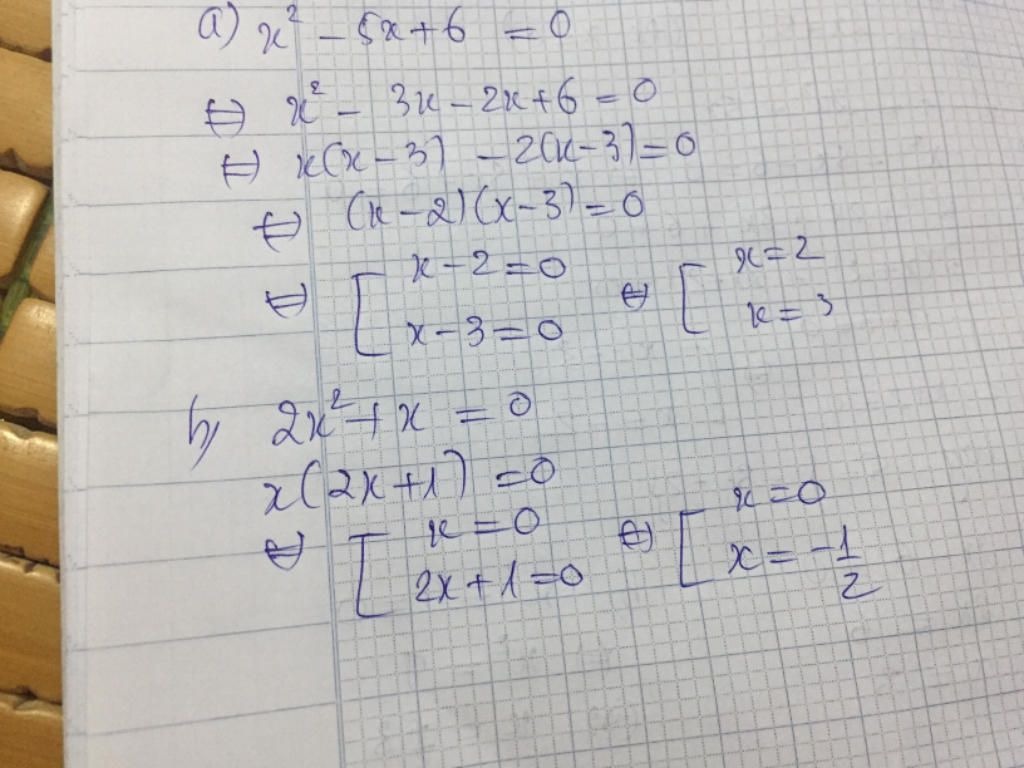 a) x² - 5x + 6 = 0
⇔ x² - 3x - 2x + 6 = 0
⇔ x(x - 3) - 2(x - 3) = 0
⇔ (x - 2)(x - 3) = 0
⇔ [ x - 2 = 0 ⇔ [ x = 2
x - 3 = 0 x = 3
b, 2x² + x = 0
x(2x + 1) = 0
⇔ [ x = 0 ⇔ [ x = 0
2x + 1 = 0 x = -1/2